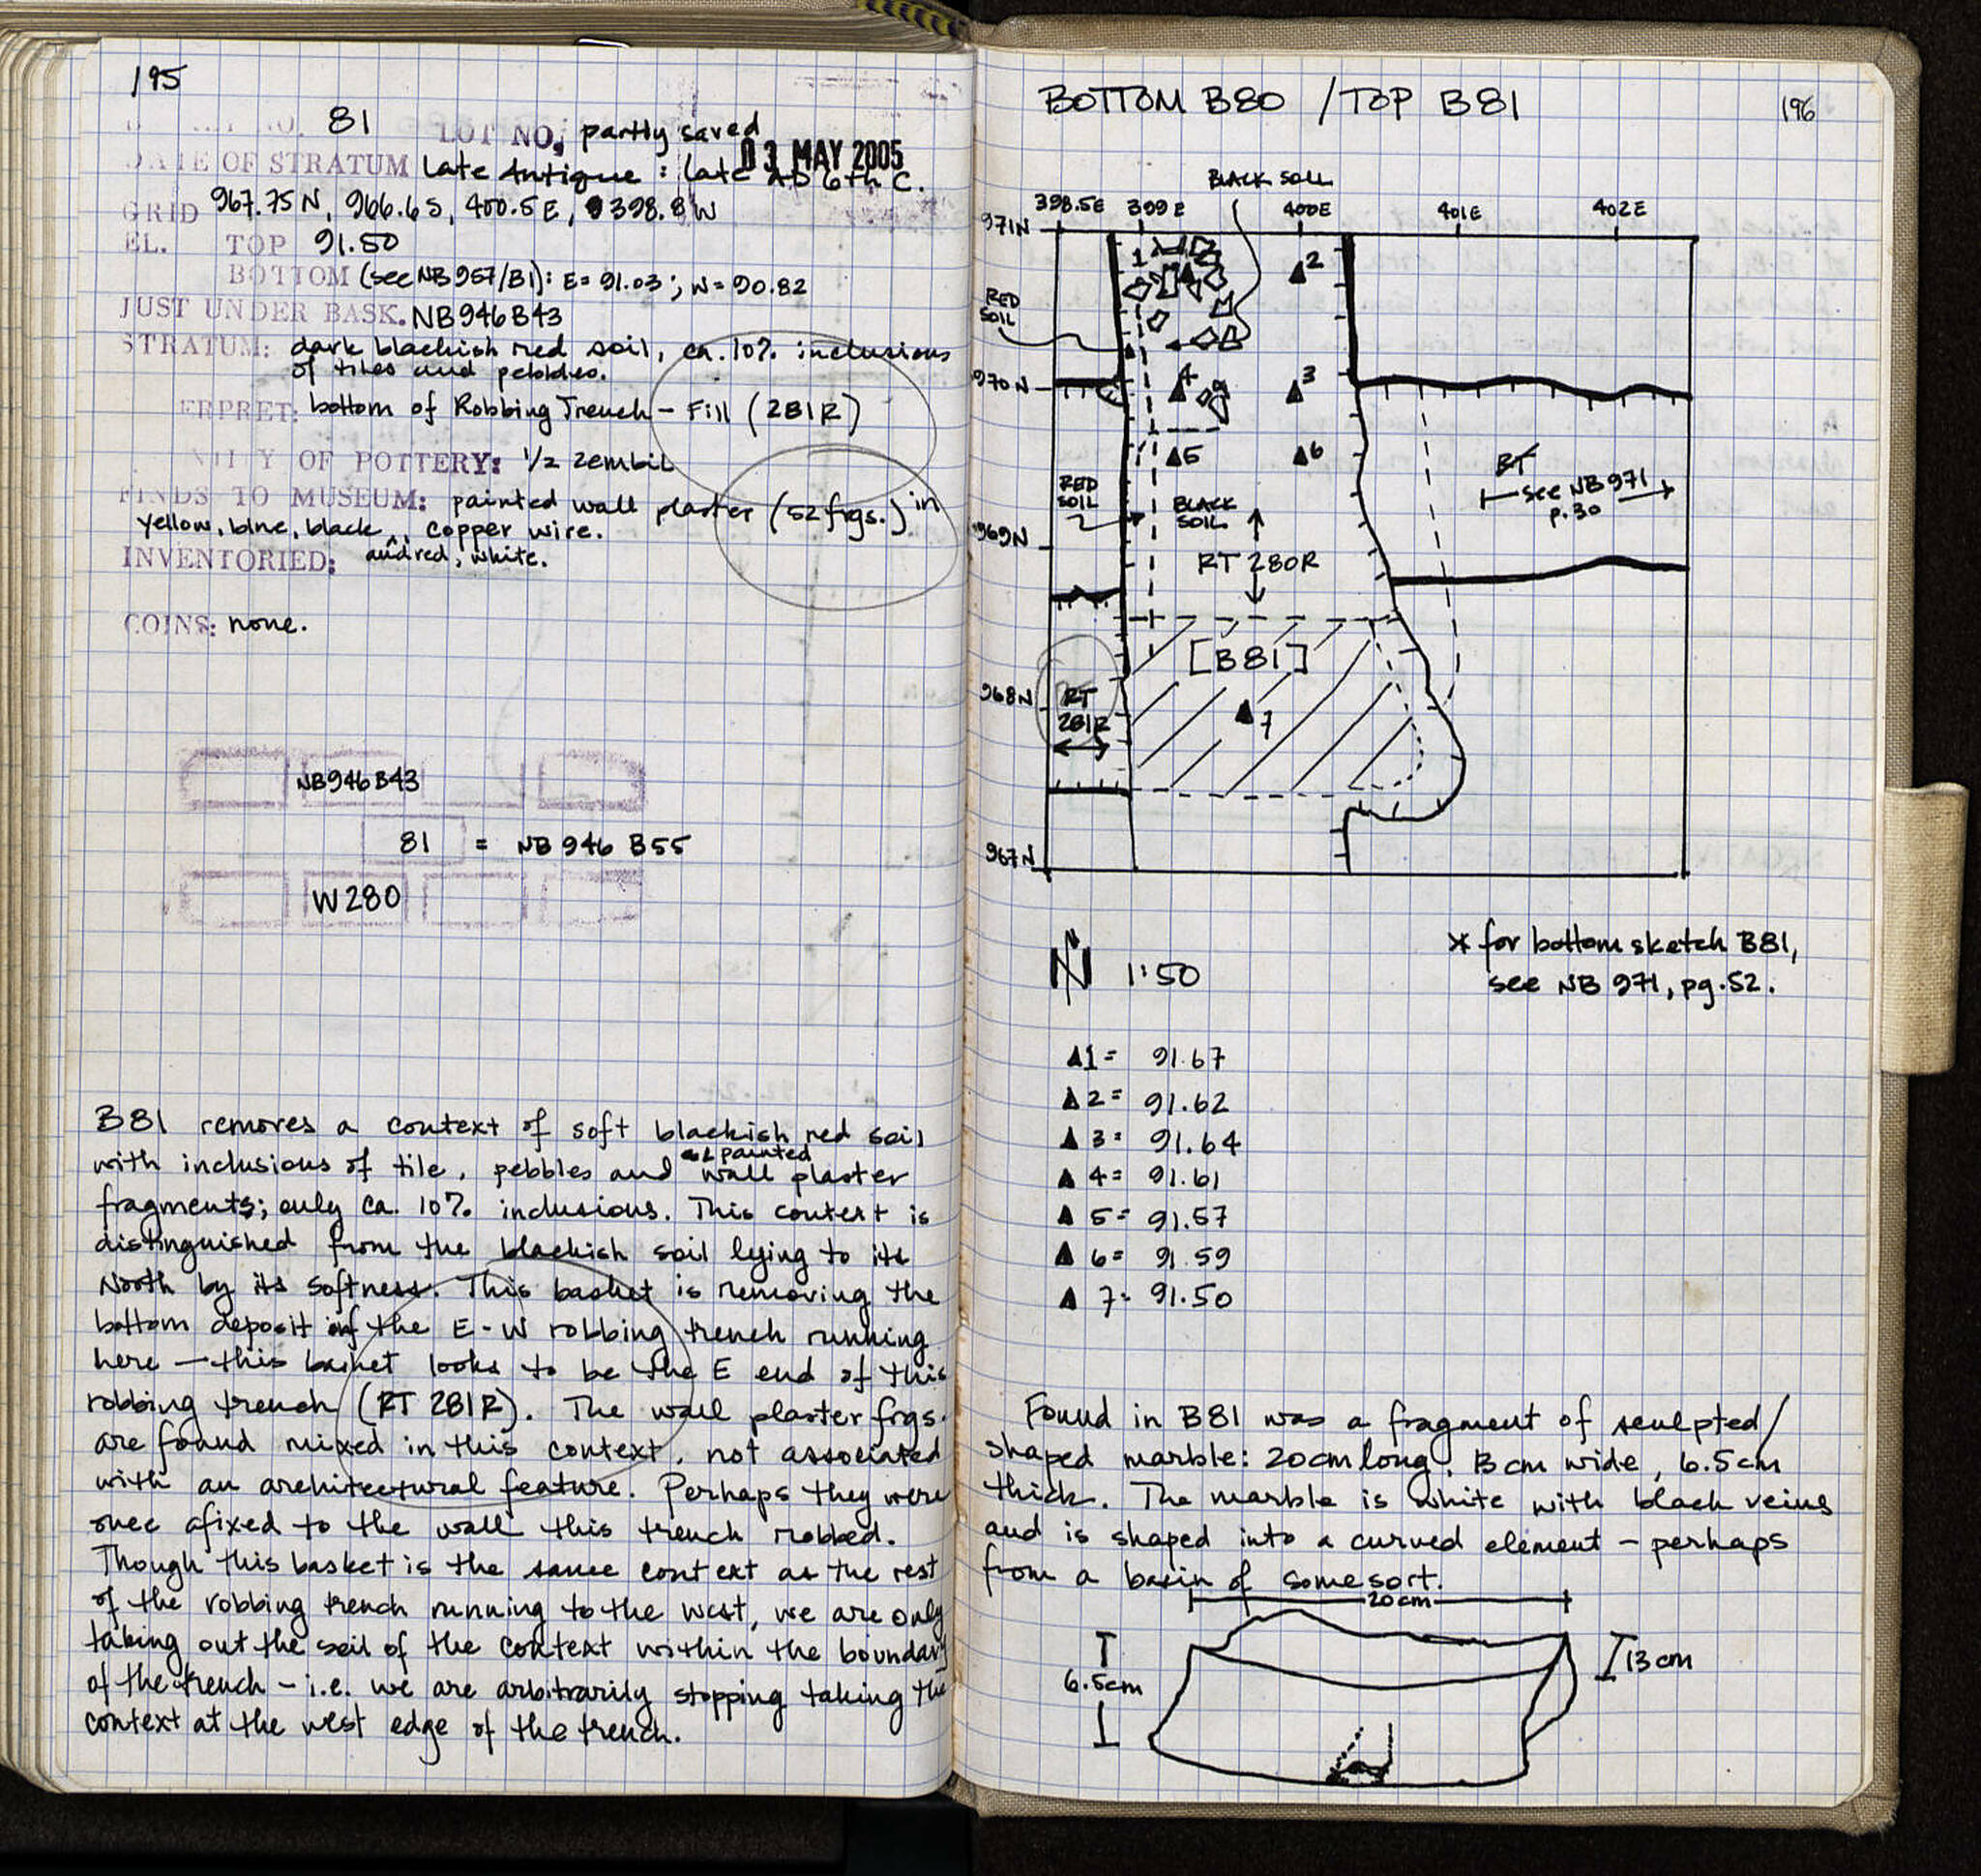 195
81 LOT NO. partly saved
03 MAY 2005
DATE OF STRATUM Late Antique : late AD 6th C.
GRID 967.75N, 966.6S, 400.5E, 398.8W
EL. TOP 91.50
BOTTOM (see NB957/B1): E= 91.03 ; W= 90.82
JUST UNDER BASK. NB946B43
STRATUM: dark blackish red soil, ca. 10% inclusions
of tiles and pebbles.
ERPRET: bottom of Robbing Trench - Fill (281R)
OF POTTERY: 1/2 zembil
FINDS TO MUSEUM: painted wall plaster (52 frgs.) in
yellow, blue, black ^ , copper wire.
and red, white.
INVENTORIED:
COINS: none.
NB946B43
81 = NB 946 B55
W280
B81 removes a context of soft blackish red soil
with inclusions of tile, pebbles and painted wall plaster
fragments; only ca. 10% inclusions. This context is
distinguished from the blackish soil lying to its
North by its softness. This basket is removing the
bottom deposit of the E-W robbing trench running
here — this basket looks to be the E end of this
robbing trench (RT 281R). The wall plaster frgs.
are found mixed in this context, not associated
with an architectural feature. Perhaps they were
once afixed to the wall this trench robbed.
Though this basket is the same context as the rest
of the robbing trench running to the west, we are only
taking out the soil of the context within the boundary
of the trench - i.e. we are arbitrarily stopping taking the
context at the west edge of the trench.
BOTTOM B80 / TOP B81
196
BLACK SOIL
398.5E 399E 400E 401E 402E
971N
1
2
RED
SOIL
970N
4
3
5
6
BT
see NB 971
p.30
RED
SOIL
BLACK
SOIL
969N
RT 280R
[B81]
968N
RT
281R
7
967N
N 1:50
* for bottom sketch B81,
see NB 971, pg. 52.
▲1= 91.67
▲2= 91.62
▲3= 91.64
▲4= 91.61
▲5= 91.57
▲6= 91.59
▲7= 91.50
Found in B81 was a fragment of sculpted/
shaped marble: 20cm long, 13 cm wide, 6.5cm
thick. The marble is white with black veins
and is shaped into a curved element - perhaps
from a basin of some sort.
20cm
6.5cm
13 cm